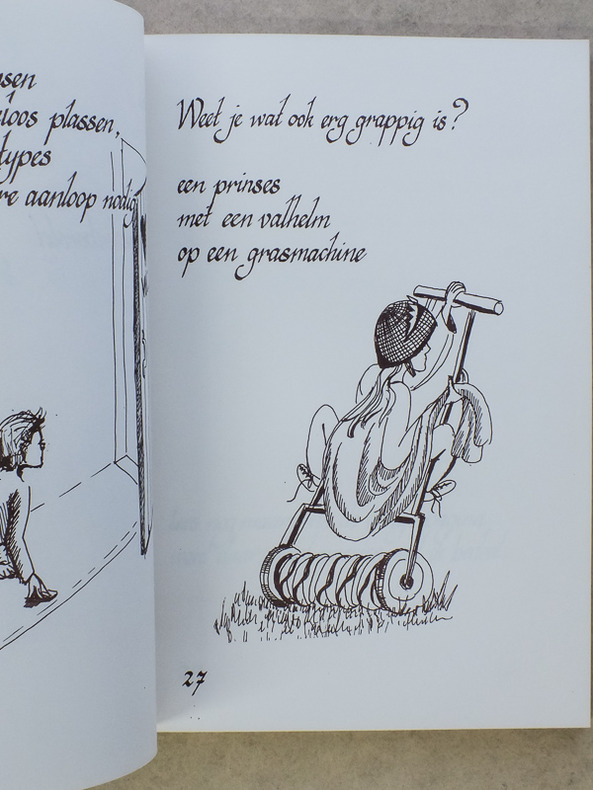 plassen,
types
aanloop nodig
Weet je wat ook erg grappig is?
een prinses
met een valhelm
op een grasmachine
27